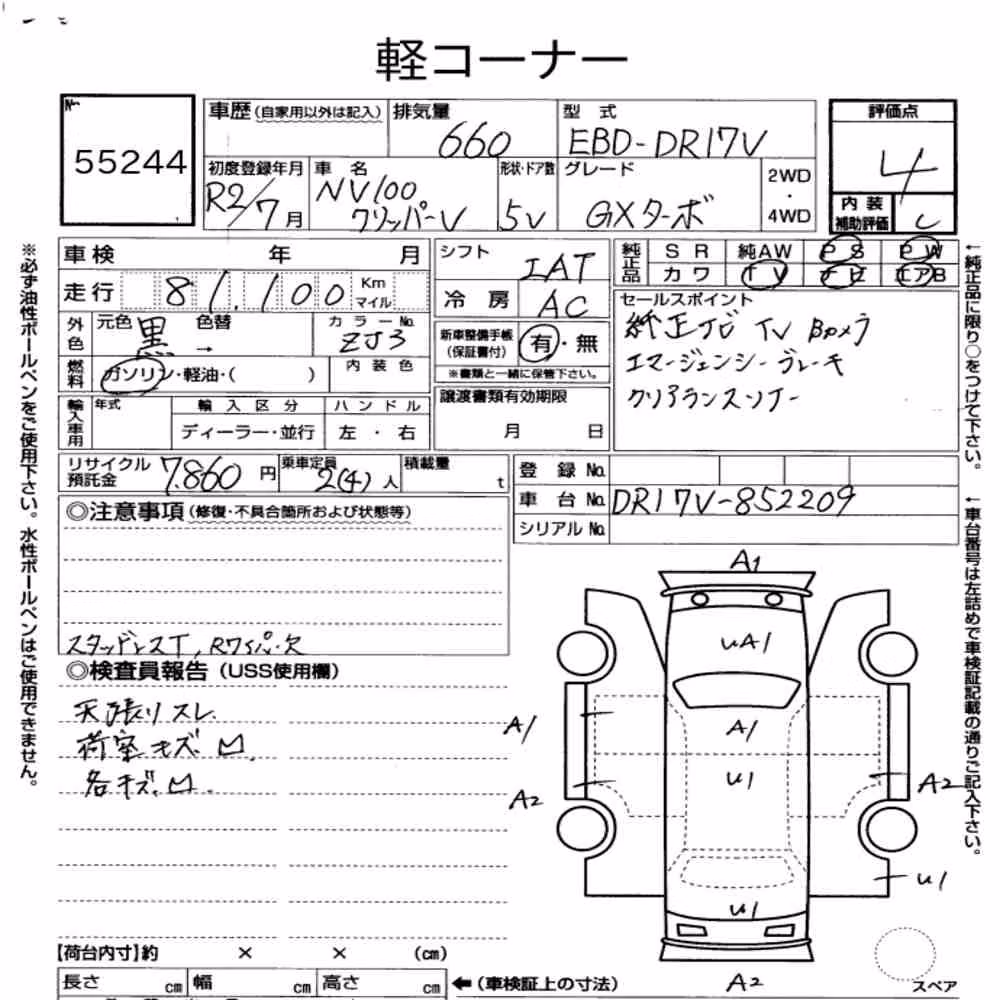 軽コーナー
No.
55244
車歴(自家用以外は記入)
排気量
660
型 式
EBD-DR17V
評価点
4
初度登録年月
R2/7月
車 名
NV100
クリッパーV
形状・ドア数
5V
グレード
GXターボ
2WD
・
4WD
内 装
補助評価
C
車検 年 月
シフト
IAT
純正品
S R 純AW P S P W
カ ワ T V ナ ビ エアB
走行 81,100 Km マイル
冷 房
AC
セールスポイント
純正ナビ TV Bカメラ
エマージェンシーブレーキ
クリアランスソナー
外色
元色 黒 色替 →
カラーNo.
ZJ3
新車整備手帳
(保証書付)
有・無
※書類と一緒に保管下さい。
燃料
ガソリン・軽油・( )
内 装 色
譲渡書類有効期限
月 日
輸入車用
年式
輸 入 区 分
ディーラー・並行
ハ ン ド ル
左 ・ 右
リサイクル
預託金
7,860 円
乗車定員
2(4)人
積載量
t
登 録 No.
車 台 No.
DR17V-852209
シリアル No.
◎注意事項(修復・不具合箇所および状態等)
スタッドレスT, Rワイパー欠
◎検査員報告(USS使用欄)
天張りスレ
荷室キズ凹
各キズ凹
A1
UA1
A1
A1
U1
A2
A2
U1
U1
A2
スペア
【荷台内寸】約 × × (cm)
長さ cm 幅 cm 高さ cm
←(車検証上の寸法)
※必ず油性ボールペンをご使用下さい。水性ボールペンはご使用できません。
←純正品に限り○をつけて下さい。
←車台番号は左詰めで車検証記載の通りご記入下さい。